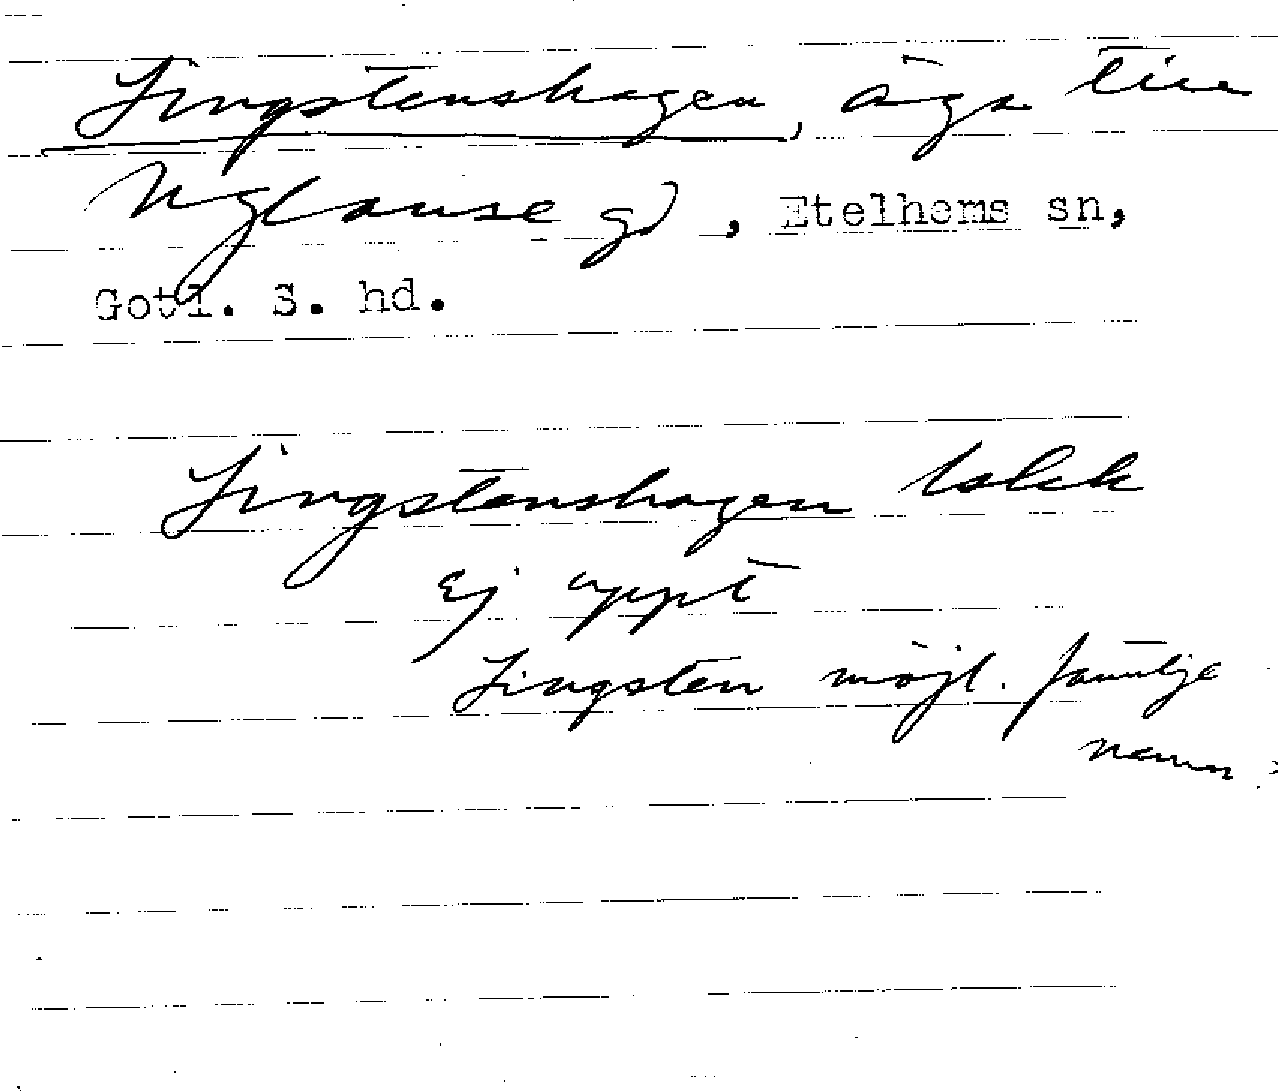 Lingstenshagen, äga till
Nygranse gd, Etelhems sn,
Gotl. S. hd.
Lingstenshagen EkK
Ej uppt
Lingsten möjl. familje
namn